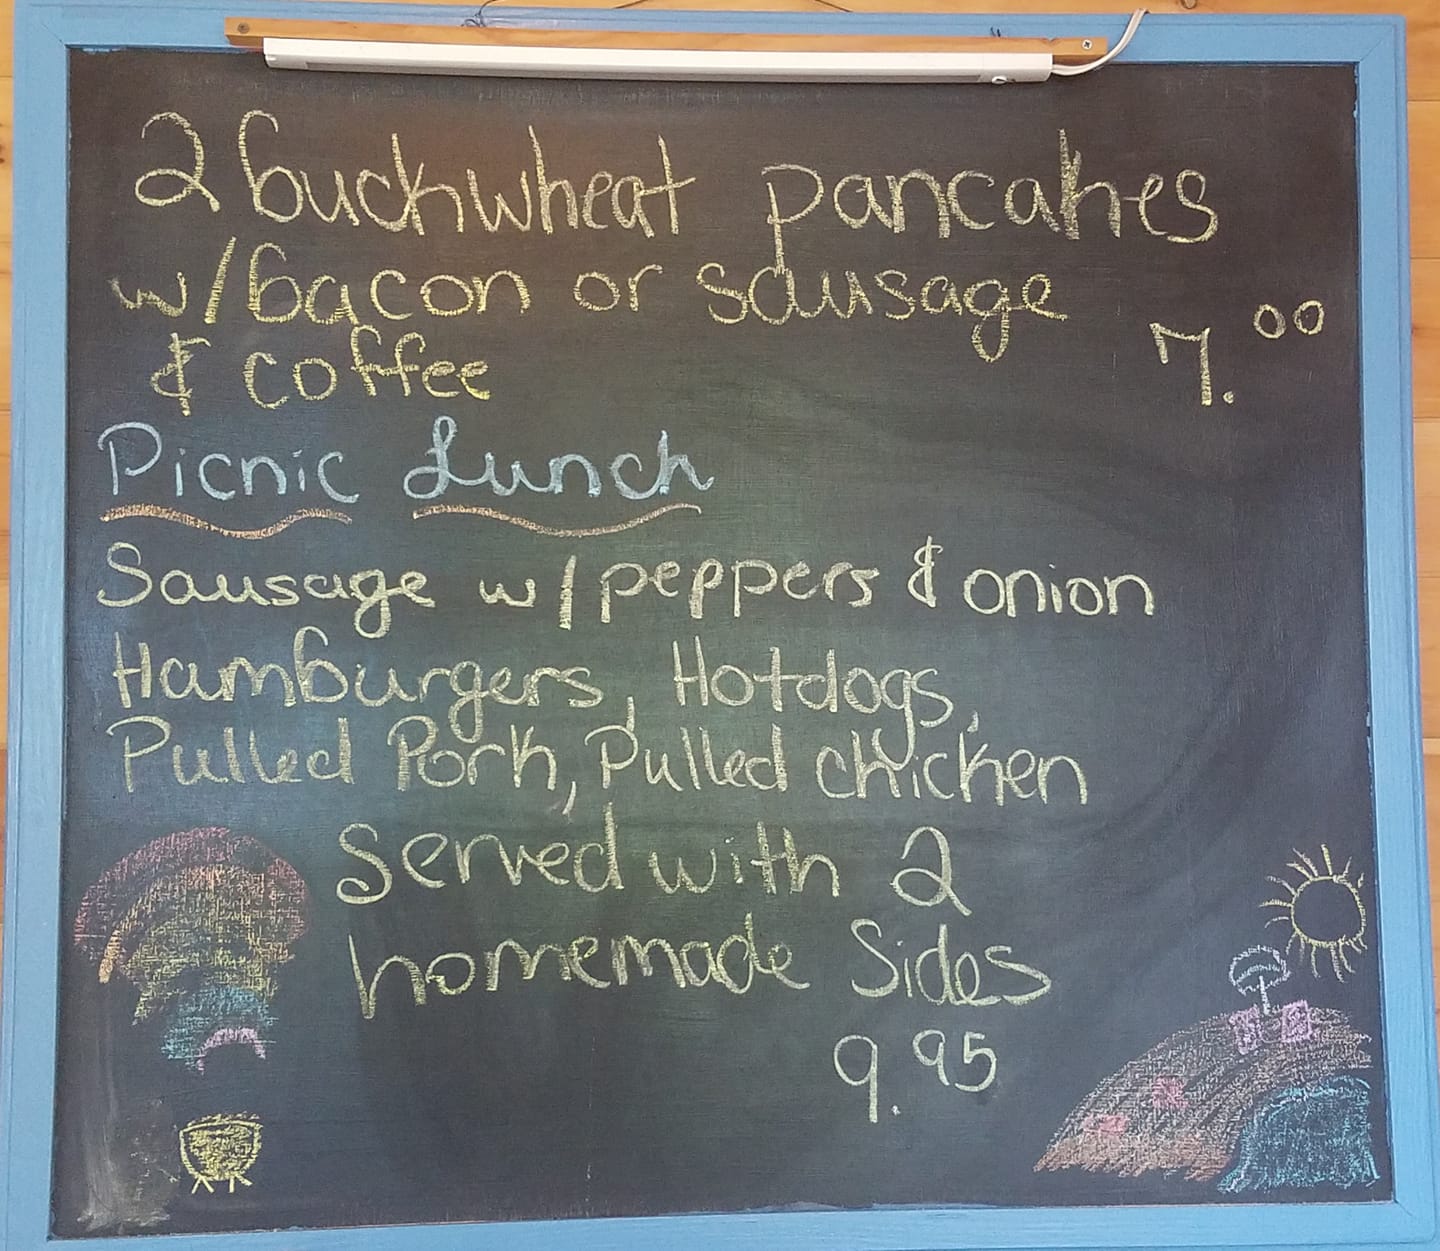 2 buckwheat pancakes
w/bacon or sausage
& coffee 7.00
Picnic Lunch
Sausage w/peppers & onion
Hamburgers, Hotdogs,
Pulled Pork, Pulled chicken
Served with 2
homemade Sides
9.95